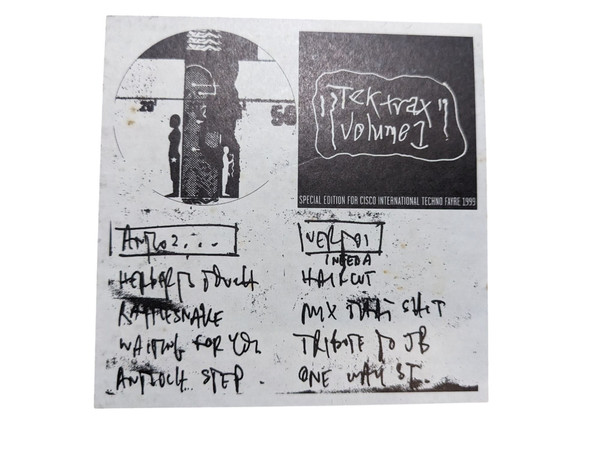 20
SG
Tektrax
Volume 1
SPECIAL EDITION FOR CISCO INTERNATIONAL TECHNO FAYRE 1999
RATTLESNAKE
WAITING FOR YOU
ANTIOCH STEP.
NEED A
HAIRCUT
MX THAT SHIT
TRIBUTE TO JB
ONE WAY ST.